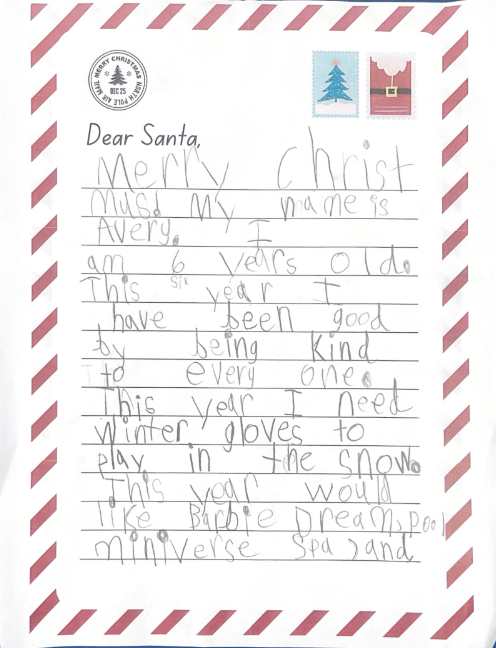 MERRY CHRISTMAS NORTH POLE AIR MAIL
DEC 25
Dear Santa,
Merry christ
mus! My name is
Avery. I
am 6 years old.
six
This year I
have been good
by being kind
to every one.
This year I need
winter gloves to
play in the snow.
This year would
like Barbie Dream, pool
miniverse Spa, and